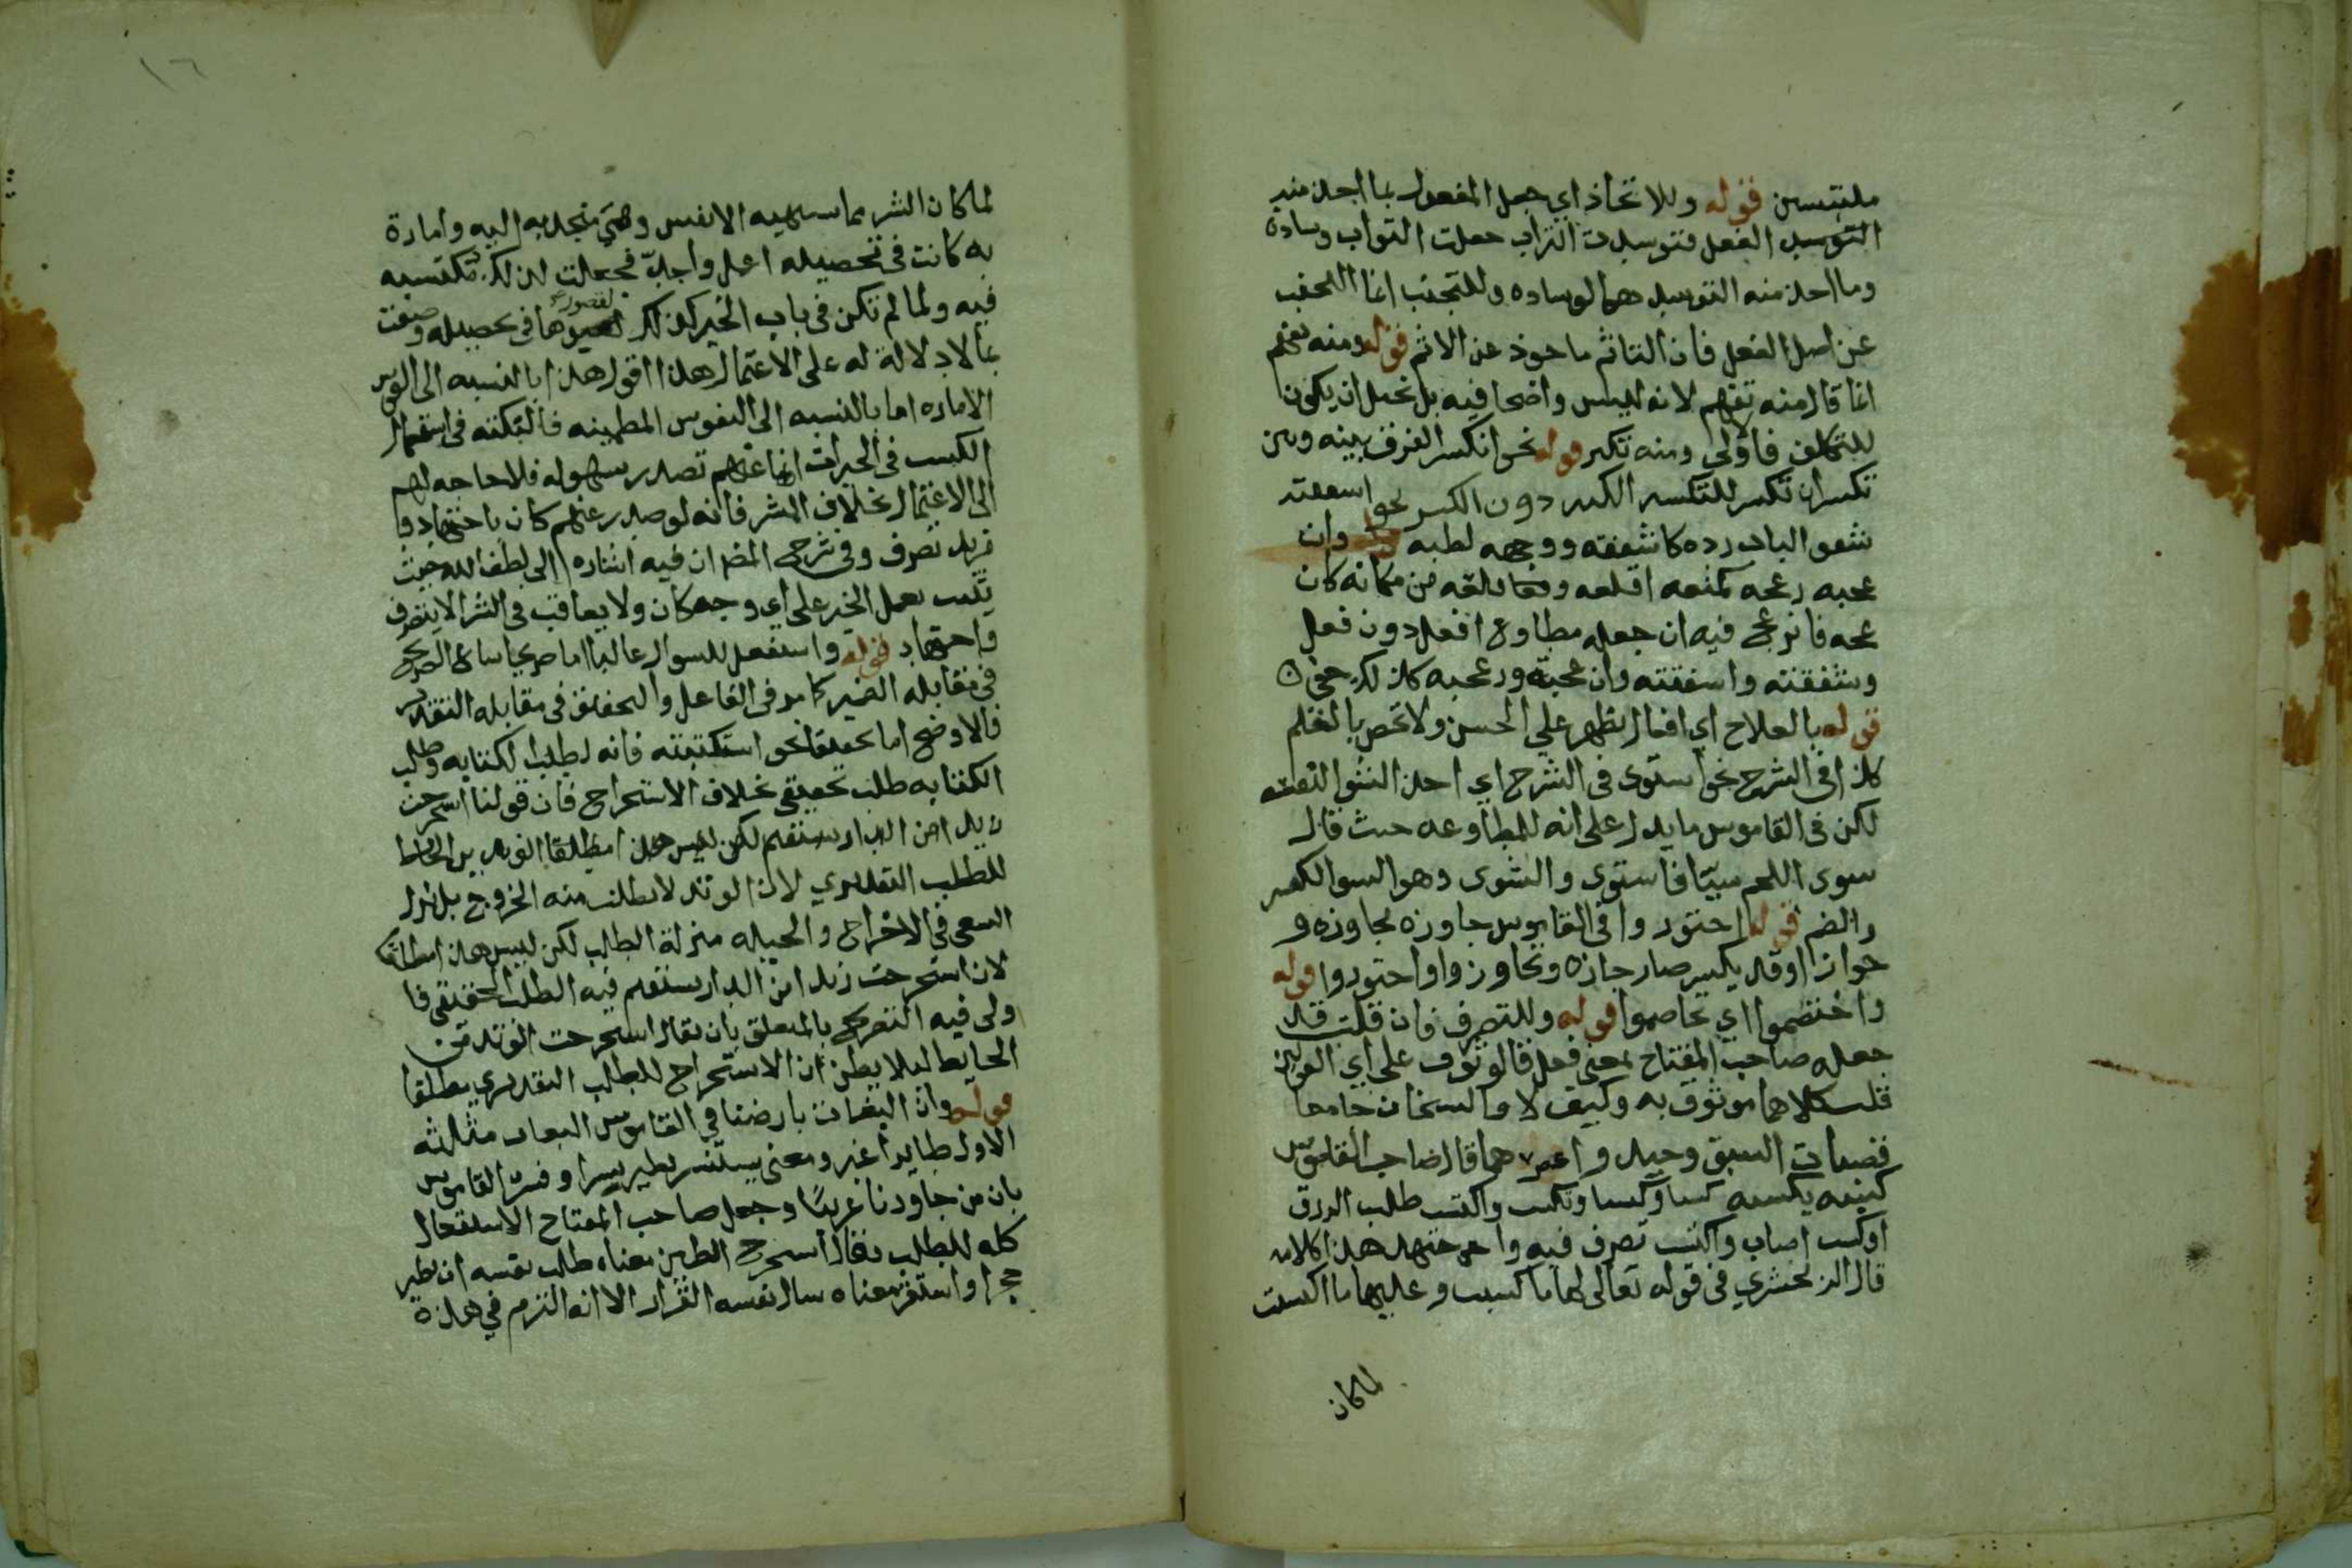 ملتبسين قوله وللاتخاذ اي جعل المفعول بما اخذ منه
التوسد الفعل فتوسدت التراب جعلت التراب وسادة
وما اخذ منه التوسد هو الوساده وللتجنب انما التجنب
عن اصل الفعل فان التاثم ماخوذ عن الاثم قوله ومنه تفهم
انما قال منه تفهم لانه ليس واضحا فيه بل يحتمل ان يكون
للتكلف فاولى ومنه تكبر قوله نحو انكسر الفرق بينه وبين
تكسر ان تكسر للتكسير الكثير دون الكسر نحو اسفقته
شفق الباب رده كاشفقه ووجهه لطبه قوله وان
عجه فانزعج فيه ان جعله مطاوع افعل دون فعل
وشفقته واسفقته وان عجته وزعجبه كذلك خفي
قوله بالعلاج اي افعال يظهر على الحسن ولا تخص بالعلم
كذا في الشرح نحو استوى في الشرح اي اخذ الشوا لنفسه
لكن في القاموس ما يدل على انه للمطاوعه حيث قال
شوى اللحم شيا فاستوى والشوى وهو الشوا بالكسر
والضم قوله اجتوروا في القاموس جاوره مجاورة و
جوارا وقد يكسر صار جاره وتجاوروا واجتوروا قوله
واختصموا اي تخاصموا قوله وللتصرف فان قلت قد
جعله صاحب المفتاح بمعنى فعل فالوثوق على اي القولين
قلت كلاهما موثوق به وكيف لا والشيخان جامعا
قصبات السبق وحيد واعصرهما قال صاحب القاموس
كسبه يكسبه كسبا وكسبا وتكسب واكتسب طلب الرزق
اوكسب اصاب واكتسب تصرف فيه واجتهد هذا كلامه
قال الزمخشري في قوله تعالى لها ما كسبت وعليها ما اكتسبت
لما كان
١٦
لما كان الشر مما تشتهيه الانفس وهي منجذبه اليه وامارة
به كانت في تحصيله اعمل واجد فجعلت لذلك مكتسبه
فيه ولما لم تكن في باب الخير كذلك لفتورها في تحصيله وصفت
بما لا دلالة له على الاعتمال هذا اقول هذا بالنسبه الى النفوس
الاماره اما بالنسبه الى النفوس المطمينه فالنكته في استعمال
الكسب في الخيرات انها عنهم تصدر بسهوله فلا حاجه لهم
الى الاعتمال بخلاف الشر فانه لو صدر عنهم كان باجتهاد و
مزيد تصرف وفي شرح المفصل ان فيه اشاره الى لطف الله حيث
يثيب بعمل الخير على اي وجه كان ولا يعاقب في الشر الا بتصرف
واجتهاد قوله واستفعل للسوال غالبا اما صريحا شاع الصريح
في مقابله الضمير كما مر في الفاعل والتحقيق في مقابله التقدير
فالاوضح اما تحقيقا نحو استكتبته فانه لطلب الكتابه وطلب
الكتابه طلب تحقيقي بخلاف الاستخراج فان قولنا استخرجت
زيدا من الدار يستقيم لكن ليس هذا مطلقا الوتد من الحايط
للطلب التقديري لان الوتد لا يطلب منه الخروج بل نزل
السعي في الاخراج والحيله منزلة الطلب لكن ليس هذا مطلقا
لان استخرجت زيدا من الدار يستقيم فيه الطلب الحقيقي فا
ولى فيه التصريح بالمتعلق بان يقال استخرجت الوتد من
الحايط لئلا يظن ان الاستخراج للطلب التقديري مطلقا
قوله وان البغاث بارضنا في القاموس البغاث مثلثه
الاول طاير اغبر ومعنى يستنسر يصير نسرا وفسره القاموس
بان من جاورنا عز بنا وجعل صاحب المفتاح الاستفعال
كله للطلب فقال استحجر الطين معناه طلب نفسه ان يصير
حجرا واستقر معناه سال نفسه القرار الا انه التزم في هذه